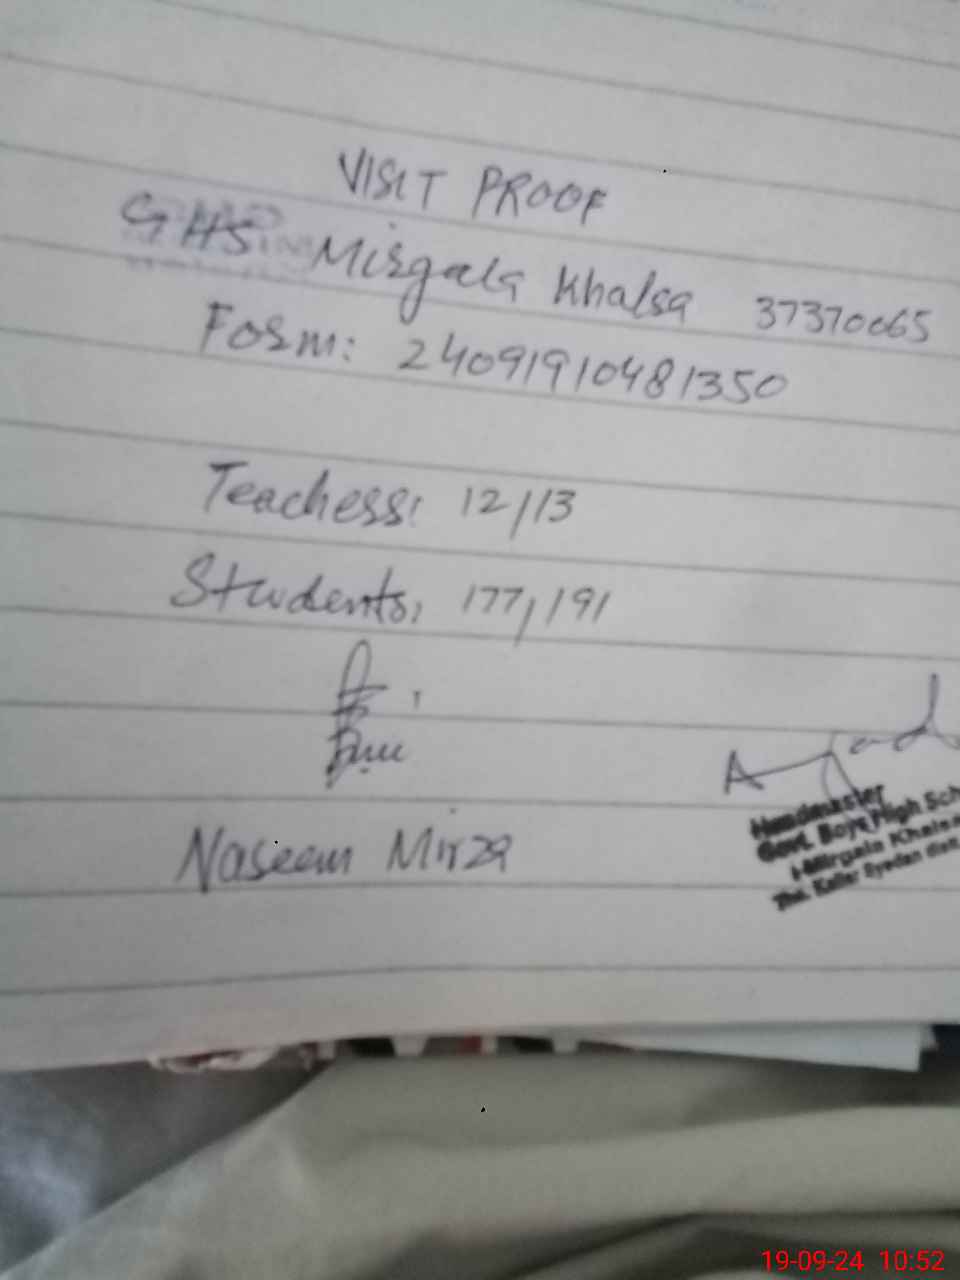 VISIT PROOF
GHS Mirgala Khalsa 37370065
Form: 24091910481350
Teachers: 12/13
Students, 177/191
Naseem Mirza
Headmaster
Govt. Boys High Sch
Mirgala Khalsa
Kallar Syedan
19-09-24 10:52